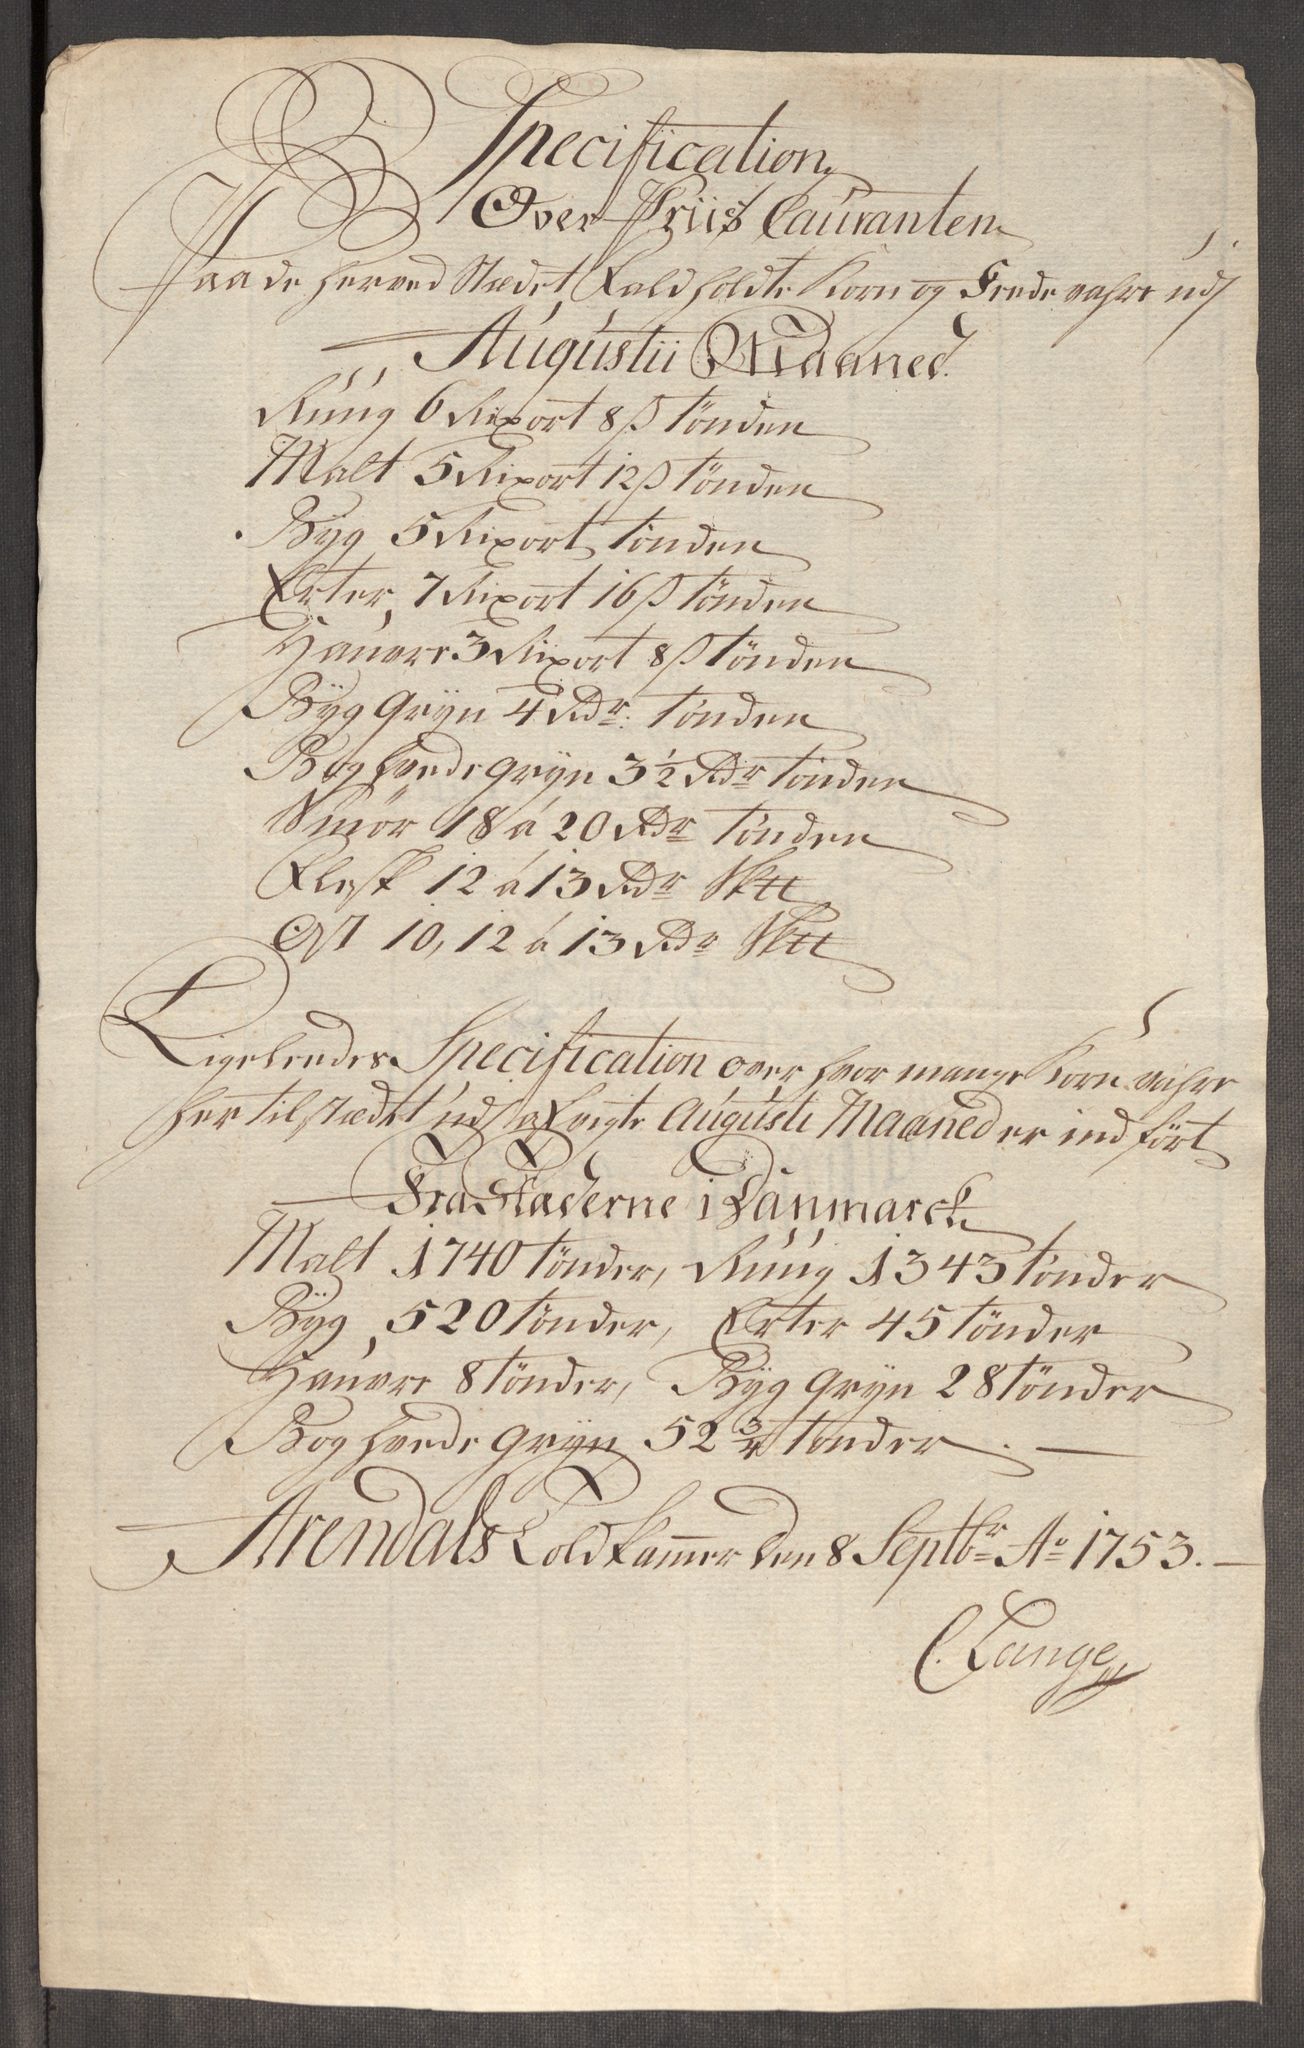 Specification
Over Priis Cauranten
Paa de herved Stædet Fald holdte Korn og Fede vahre udj
Augustii Maaned.
Rúúg 6 Rixort 8 ß tönden
Malt 5 Rixort 12 ß tönden
Byg 5 Rixort tönden
Erter 7 Rixort 16 ß tönden
Hauvre 3 Rixort 8 ß tönden
Byg Gryn 4 Rdr. tönden
Boghvede gryn 3½ Rdr tönden
Smör 18 á 20 Rdr tönden
Flesk 12 á 13 Rdr Sktt
Ost 10, 12 á 13 Rdr Sktt
Ligeleedes Specification over hvor mange Korn vahre
her til stædet udj Augusti Maaned er ind fört
Fra Stæderne i Danmarck
Malt 1740 tönder, Rúúg 1343 tönder
Byg 520 tönder, Erter 45 tönder
Hauvre 8 tönder, Byg gryn 28 tönder
Boghvede gryn 52¾ tönder.
Arendals Told kammer den 8 Septbr Ao 1753.
C. Lange